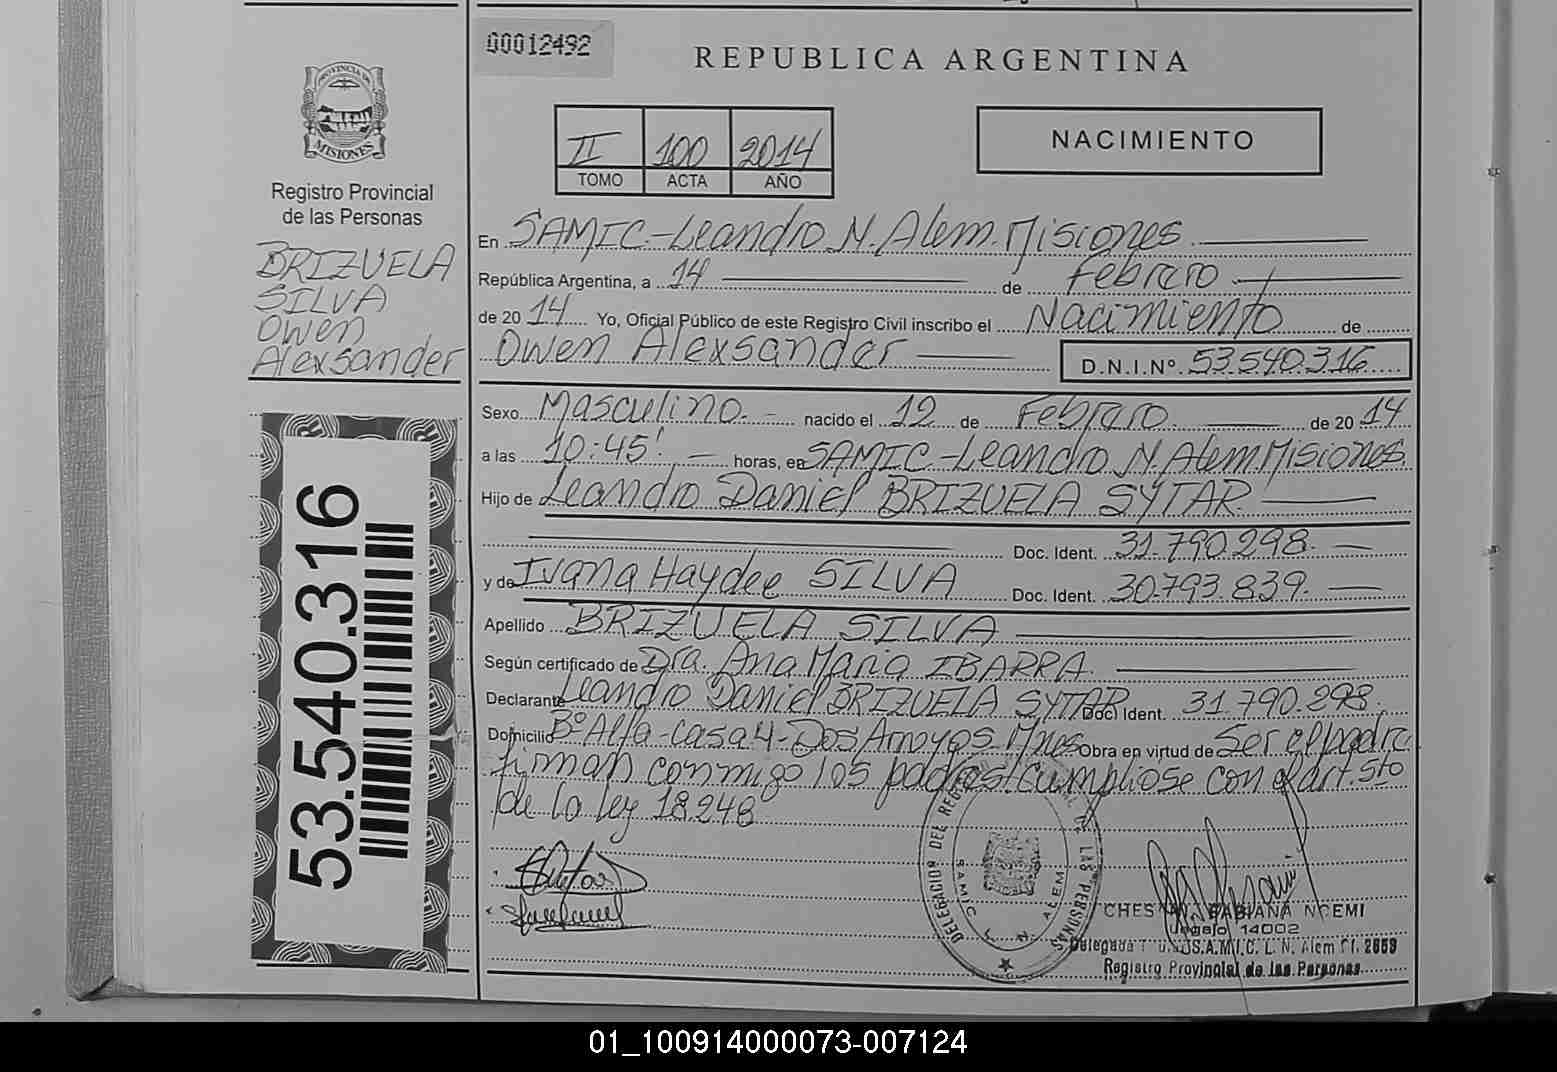 00012492
REPUBLICA ARGENTINA
PROVINCIA DE
MISIONES
Registro Provincial
de las Personas
BRIZUELA
SILVA
Owen
Alexsander
53.540.316
II 100 2014
TOMO ACTA AÑO
NACIMIENTO
En SAMIC-Leandro N. Alem. Misiones
República Argentina, a 14 de Febrero
de 20 14 Yo, Oficial Público de este Registro Civil inscribo el Nacimiento de
Owen Alexsander D.N.I.Nº. 53.540.316
Sexo Masculino.- nacido el 12 de Febrero de 20 14
a las 10:45' horas, en SAMIC-Leandro N. Alem. Misiones
Hijo de Leandro Daniel BRIZUELA SYTAR
Doc. Ident. 31.790.298.
y de Ivana Haydee SILVA Doc. Ident. 30.793.839.
Apellido BRIZUELA SILVA
Según certificado de Dra. Ana Maria IBARRA.
Declarante Leandro Daniel BRIZUELA SYTAR Doc. Ident. 31.790.298.
Domicilio Bº Alfa-Casa 4-Dos Arroyos Mnes Obra en virtud de Ser el padre
firman conmigo los padres. Cumpliose con el art. 5to
de la ley 18.248
DELEGACION DEL LAS PERSONAS
SAMIC L. N. ALEM
FABIANA NOEMI
Legajo 14002
S.A.M.I.C. L. N. Alem Cl. 2659
Registro Provincial de las Personas
01_100914000073-007124